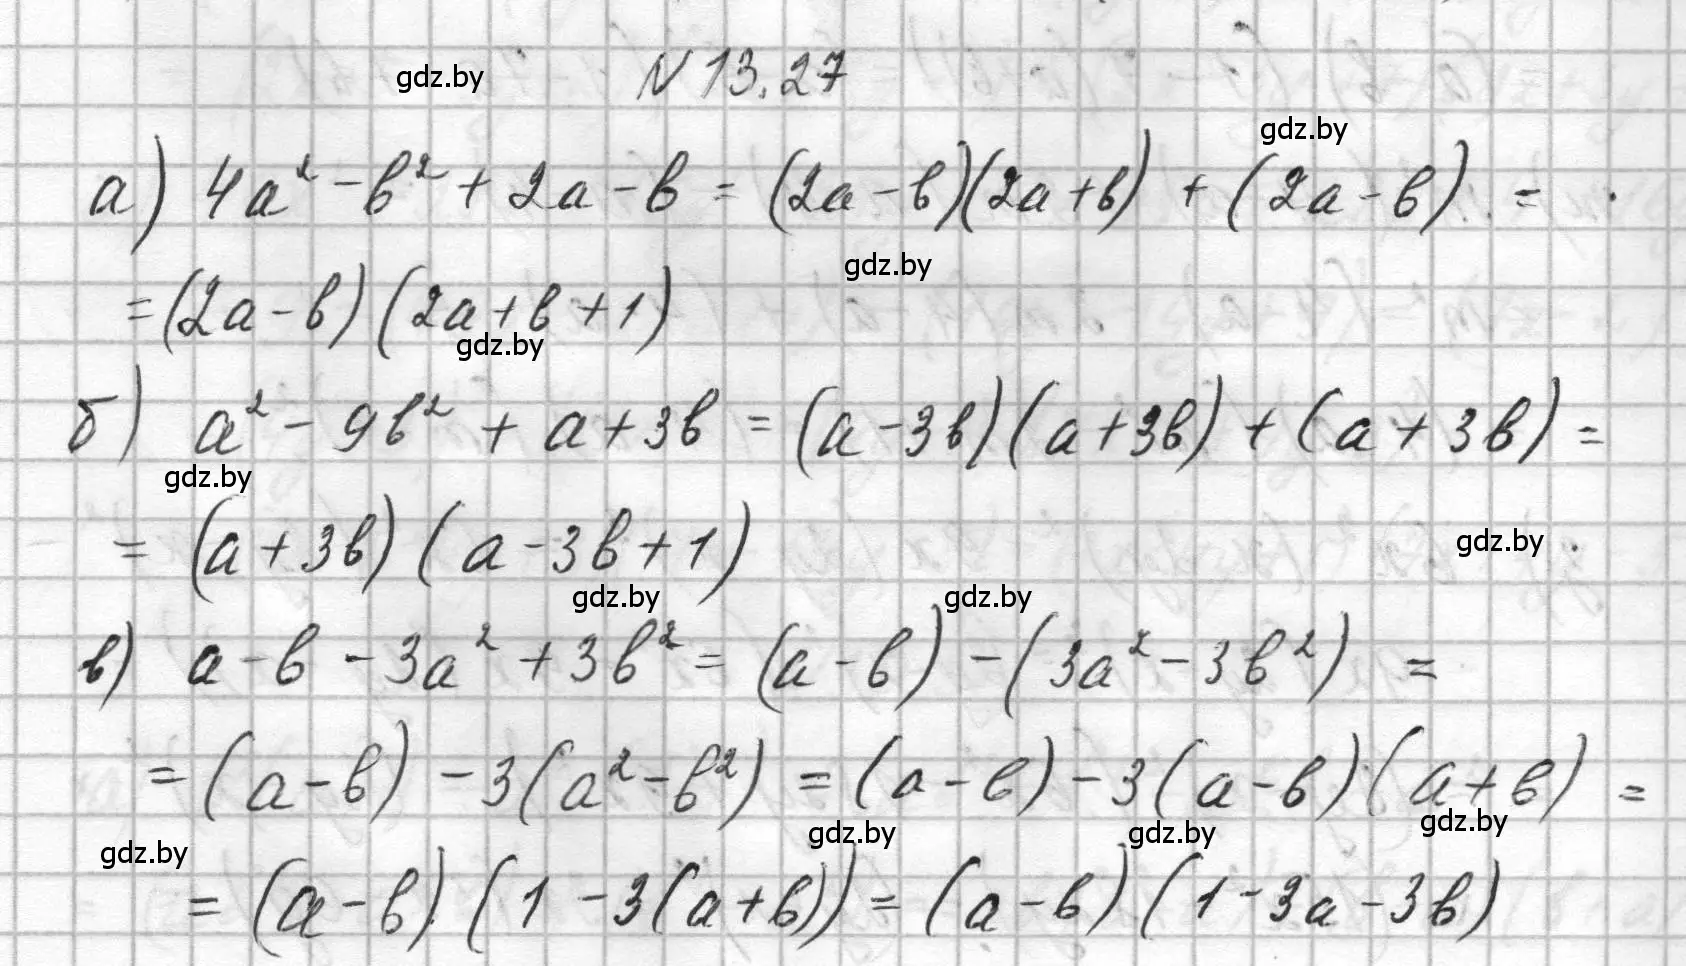 gdz.by
N 13.27
gdz.by
а) 4a² - b² + 2a - b = (2a - b)(2a + b) + (2a - b) =
gdz.by
= (2a - b) (2a + b + 1)
gdz.by
б) a² - 9b² + a + 3b = (a - 3b)(a + 3b) + (a + 3b) =
gdz.by
= (a + 3b) (a - 3b + 1)
gdz.by
gdz.by
gdz.by
в) a - b - 3a² + 3b² = (a - b) - (3a² - 3b²) =
= (a - b) - 3(a² - b²) = (a - b) - 3(a - b)(a + b) =
gdz.by
gdz.by
gdz.by
gdz.by
= (a - b) (1 - 3(a + b)) = (a - b) (1 - 3a - 3b)